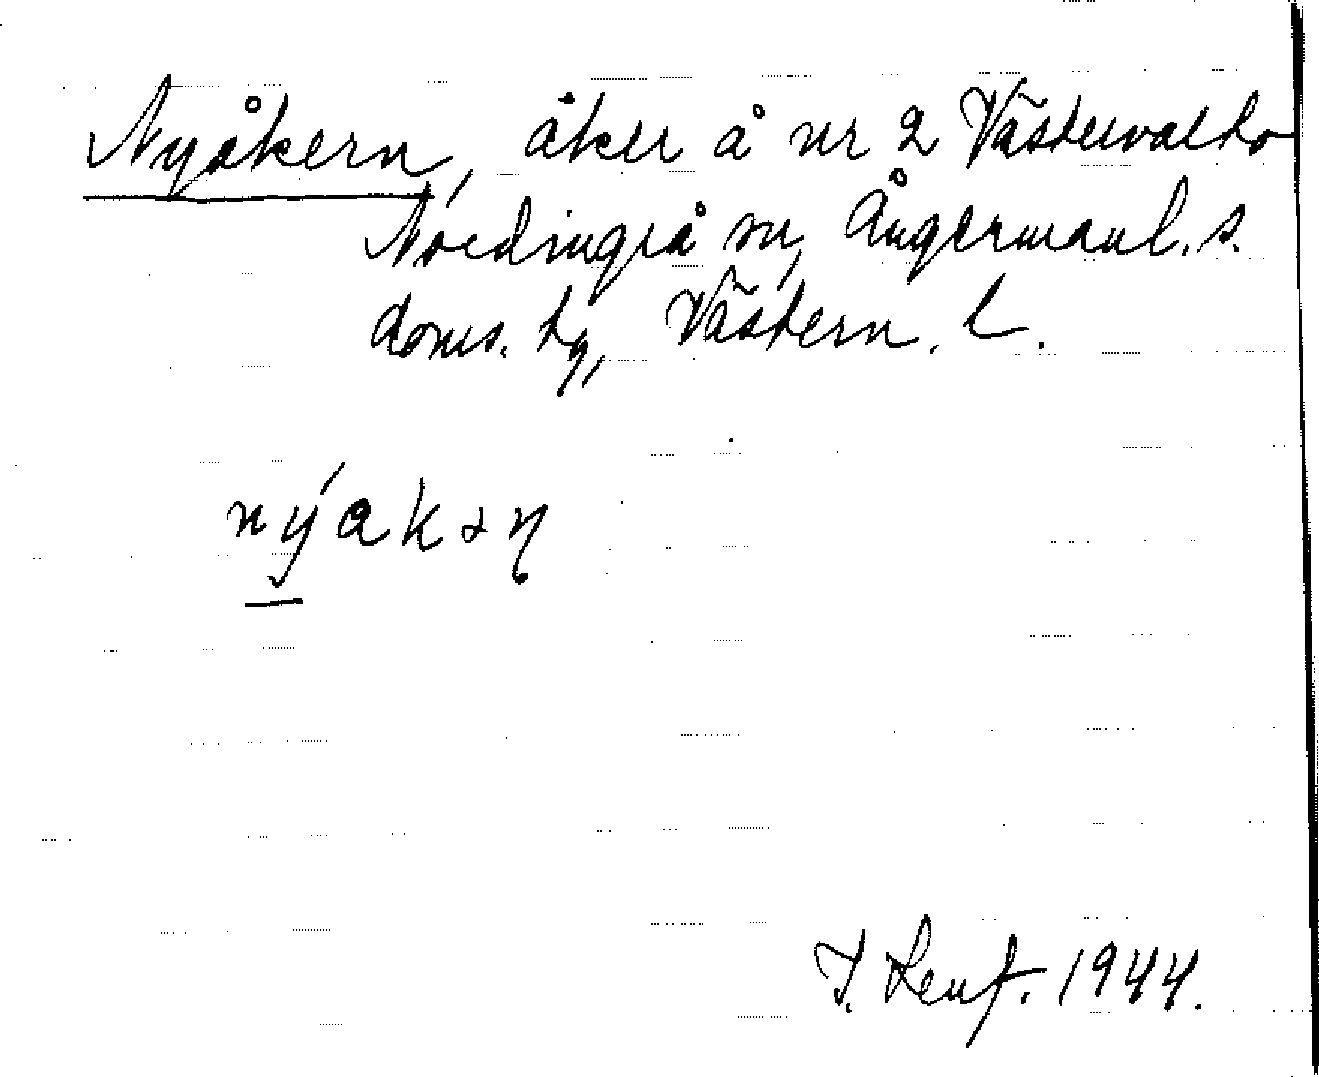 Nyåkern, åker å nr 2 Västervalto
Nordingrå sn, Ångermanl. s.
doms. hg, Västern. l.
nýakən
1944.